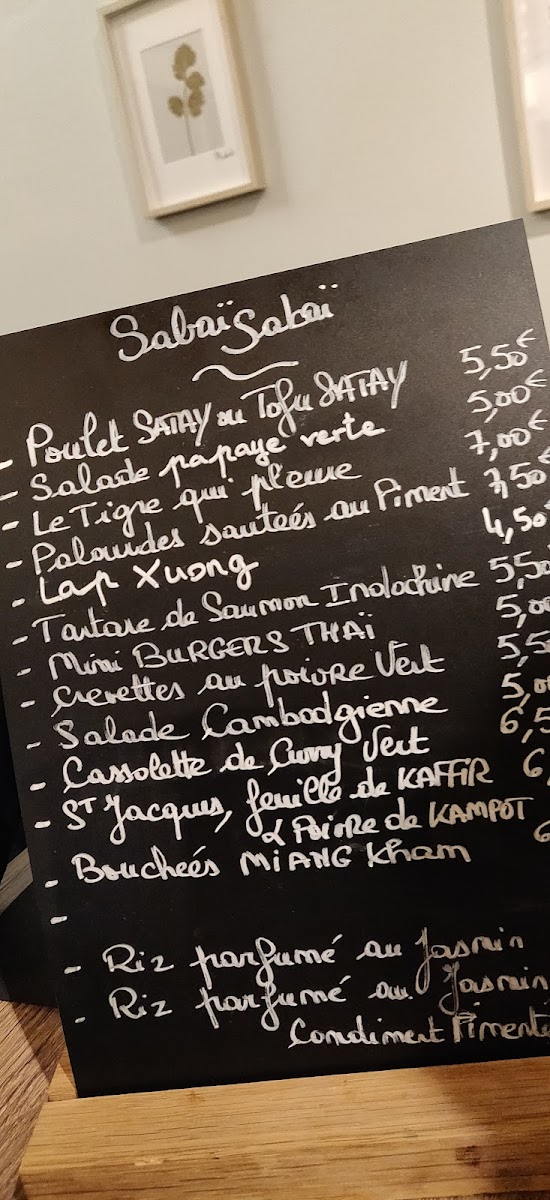 Sabaï Sabaï
- Poulet SATAY ou Tofu SATAY 5,50€
- Salade papaye verte 5,00€
- Le Tigre qui pleure 7,00€
- Palourdes sauteés au Piment 7,50€
- Lap Xuong 4,50
- Tartare de Saumon Indochine 5,50
- Mini BURGERS THAÏ 5,00
- Crevettes au poivre Vert 5,5
- Salade Cambodgienne 5,0
- Cassolette de Curry Vert 6,5
- ST Jacques, feuille de KAFFIR 6,
& Poivre de KAMPOT
- Boucheés MIANG Kham 6
-
- Riz parfumé au Jasmin
- Riz parfumé au Jasmin
Condiment Pimenté